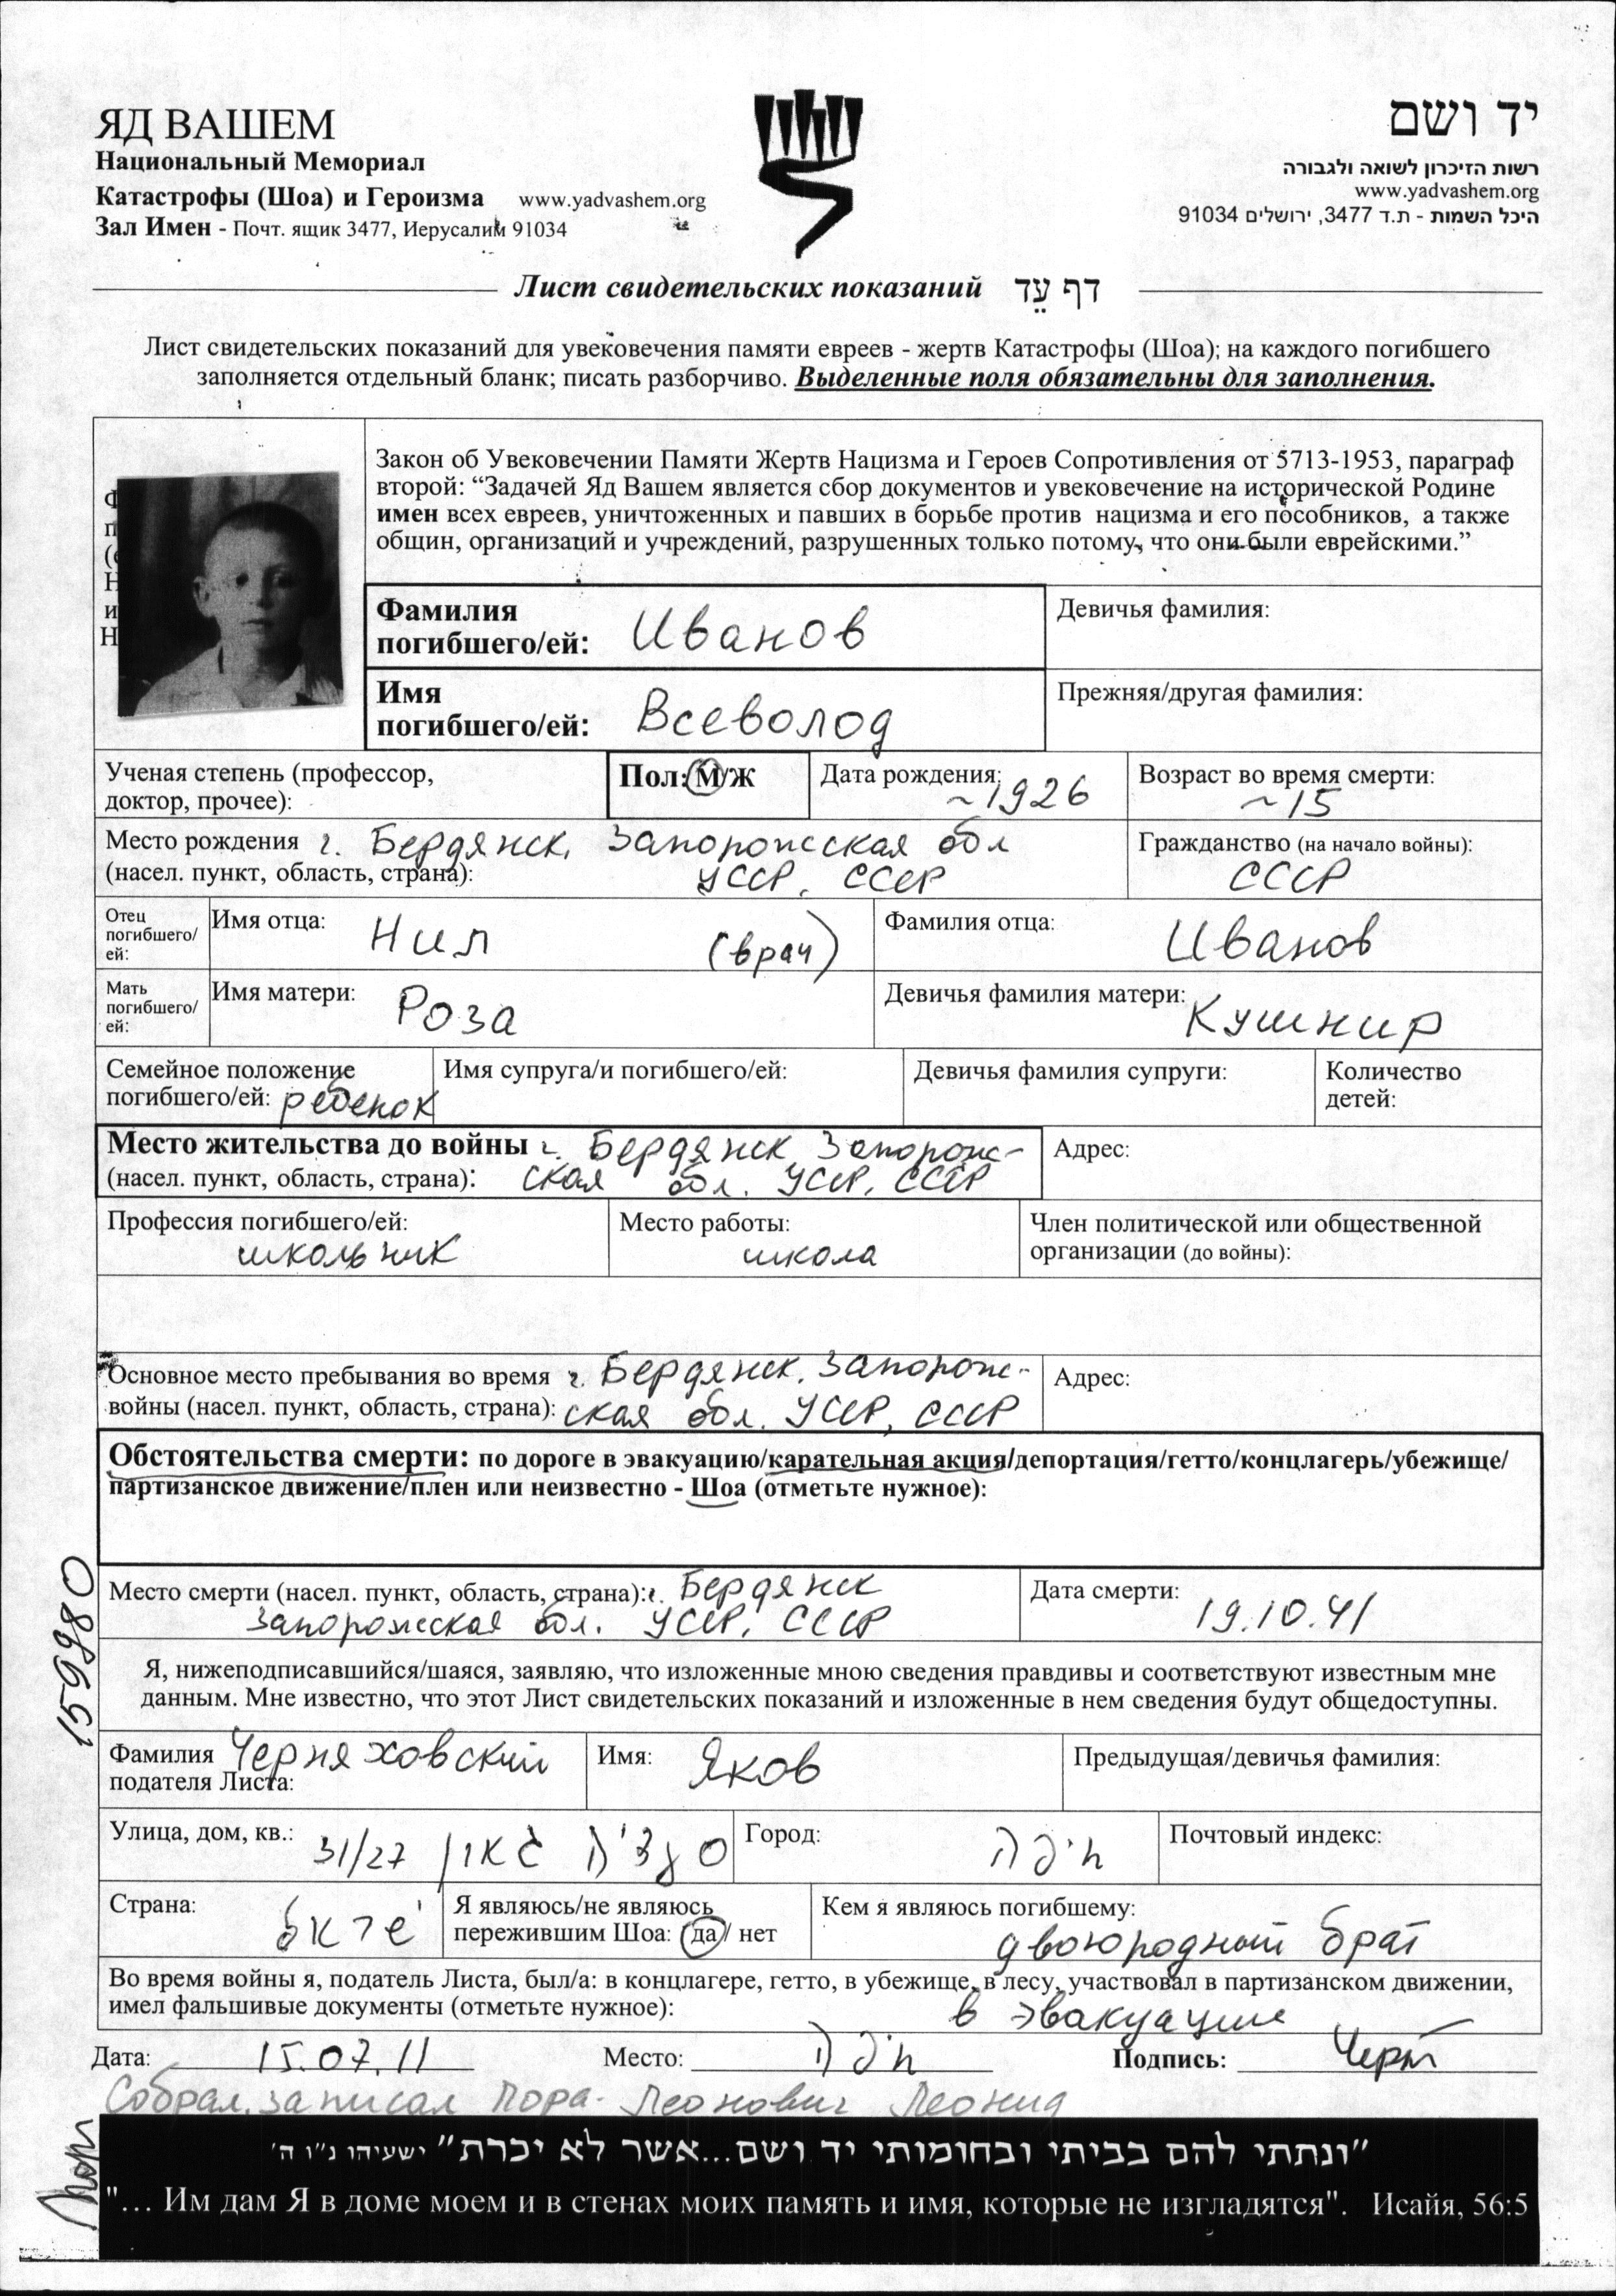 ЯД ВАШЕМ
Национальный Мемориал
Катастрофы (Шоа) и Героизма www.yadvashem.org
Зал Имен - Почт. ящик 3477, Иерусалим 91034
יד ושם
רשות הזיכרון לשואה ולגבורה
www.yadvashem.org
היכל השמות - ת.ד 3477, ירושלים 91034
Лист свидетельских показаний דף עֵד
Лист свидетельских показаний для увековечения памяти евреев - жертв Катастрофы (Шоа); на каждого погибшего
заполняется отдельный бланк; писать разборчиво. Выделенные поля обязательны для заполнения.
Закон об Увековечении Памяти Жертв Нацизма и Героев Сопротивления от 5713-1953, параграф
второй: “Задачей Яд Вашем является сбор документов и увековечение на исторической Родине
имен всех евреев, уничтоженных и павших в борьбе против нацизма и его пособников, а также
общин, организаций и учреждений, разрушенных только потому, что они были еврейскими.”
Фамилия
погибшего/ей: Иванов
Девичья фамилия:
Имя
погибшего/ей: Всеволод
Прежняя/другая фамилия:
Ученая степень (профессор,
доктор, прочее):
Пол: М/Ж
Дата рождения:
~1926
Возраст во время смерти:
~15
Место рождения г. Бердянск, Запорожская обл
(насел. пункт, область, страна): УССР, СССР
Гражданство (на начало войны):
СССР
Отец
погибшего/
ей:
Имя отца: Нил (врач)
Фамилия отца: Иванов
Мать
погибшего/
ей:
Имя матери: Роза
Девичья фамилия матери: Кушнир
Семейное положение
погибшего/ей: ребенок
Имя супруга/и погибшего/ей:
Девичья фамилия супруги:
Количество
детей:
Место жительства до войны г. Бердянск Запорож-
(насел. пункт, область, страна): ская обл. УССР, СССР
Адрес:
Профессия погибшего/ей:
школьник
Место работы:
школа
Член политической или общественной
организации (до войны):
Основное место пребывания во время г. Бердянск. Запорож-
войны (насел. пункт, область, страна): ская обл. УССР, СССР
Адрес:
Обстоятельства смерти: по дороге в эвакуацию/карательная акция/депортация/гетто/концлагерь/убежище/
партизанское движение/плен или неизвестно - Шоа (отметьте нужное):
159980
Место смерти (насел. пункт, область, страна): г. Бердянск
Запорожская обл. УССР, СССР
Дата смерти:
19.10.41
Я, нижеподписавшийся/шаяся, заявляю, что изложенные мною сведения правдивы и соответствуют известным мне
данным. Мне известно, что этот Лист свидетельских показаний и изложенные в нем сведения будут общедоступны.
Фамилия Черняховский
подателя Листа:
Имя: Яков
Предыдущая/девичья фамилия:
Улица, дом, кв.: 31/27
Город: חיפה
Почтовый индекс:
Страна:
Я являюсь/не являюсь
пережившим Шоа: да / нет
Кем я являюсь погибшему:
двоюродный брат
Во время войны я, податель Листа, был/а: в концлагере, гетто, в убежище, в лесу, участвовал в партизанском движении,
имел фальшивые документы (отметьте нужное): в эвакуации
Дата: 15.07.11 Место: חיפה Подпись:
Собрал, записал Пора-Леонович Леонид
"ונתתי להם בביתי ובחומותי יד ושם...אשר לא יכרת" ישעיהו נ"ו ה'
"... Им дам Я в доме моем и в стенах моих память и имя, которые не изгладятся". Исайя, 56:5